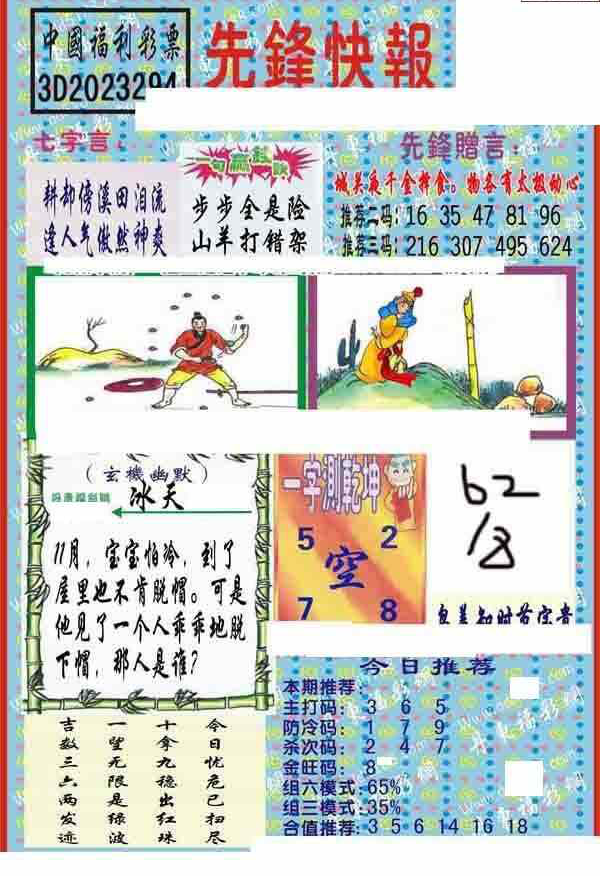 中國福利彩票
先鋒快報
3D2023294
七字言：
一句贏錢訣
先鋒贈言：
耕却傍溪田泪流
逢人气傲然神爽
步步全是险
山羊打错架
推荐二码: 16 35 47 81 96
推荐三码: 216 307 495 624
（玄機幽默）
冰天
11月，宝宝怕冷，到了
屋里也不肯脱帽。可是
他见了一个人乖乖地脱
下帽，那人是谁？
一字測乾坤
5 2
空
7 8
62
18
今日推荐
本期推荐:
主打码: 3 6 5
防冷码: 1 7 9
杀次码: 2 4 7
金旺码: 8
组六模式:65%
组三模式:35%
合值推荐:3 5 6 14 16 18
今日忧危已扫尽
十拿九稳出红珠
一望无限是绿波
吉数三六两发迹